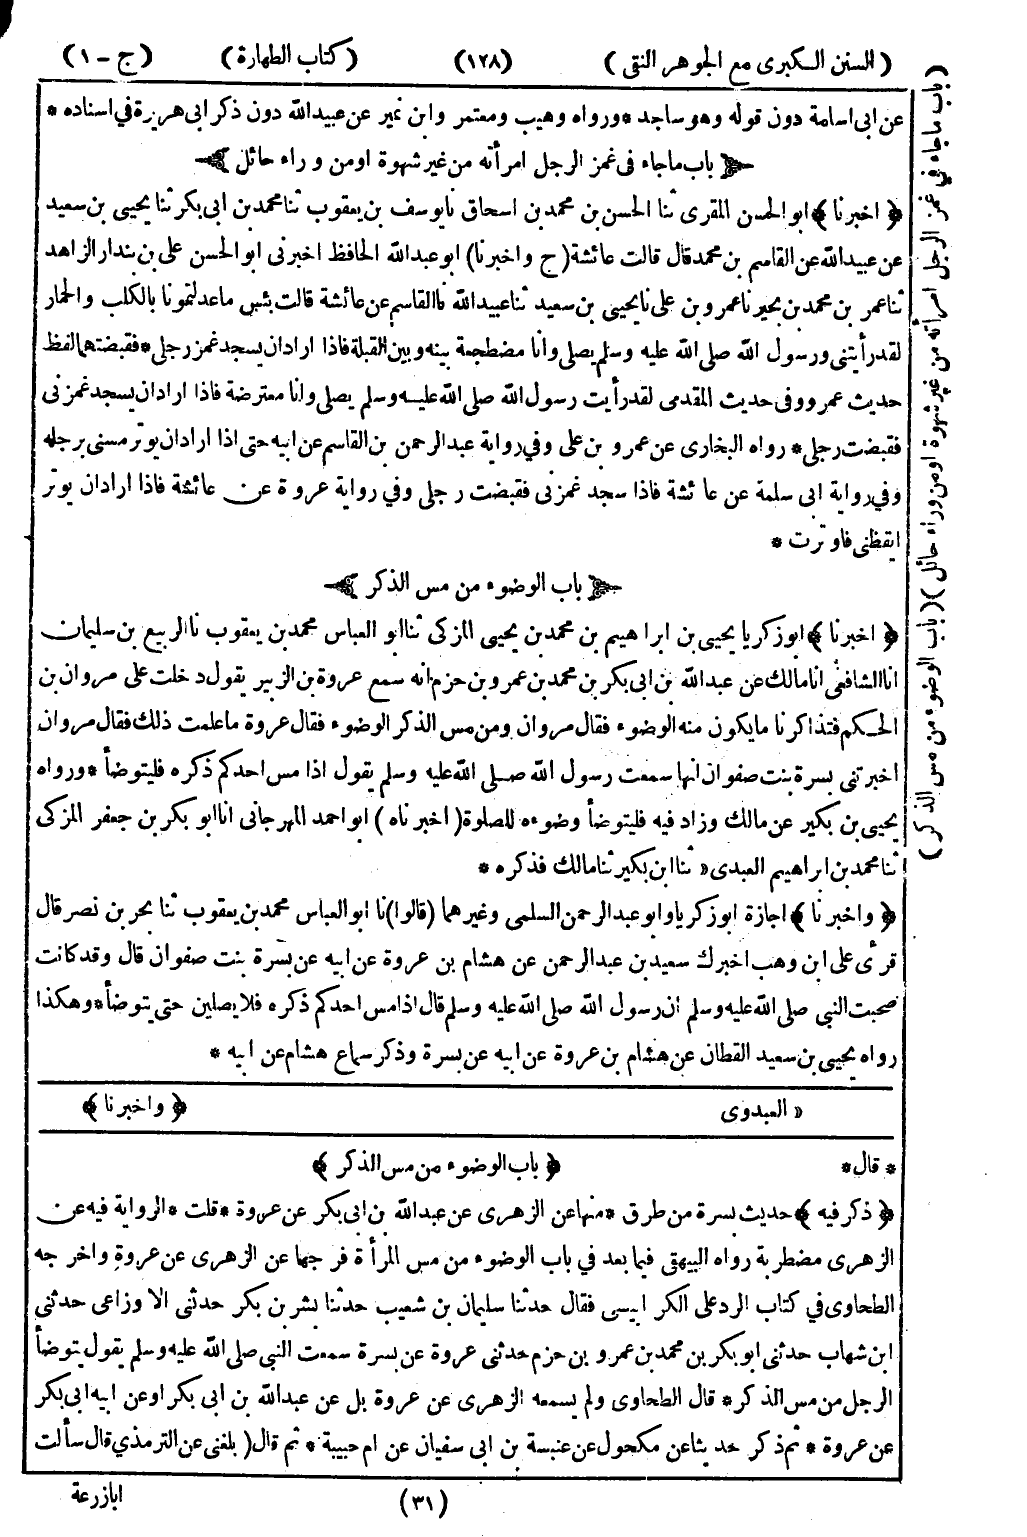 (السنن الكبرى مع الجوهر النقى) (١٢٨) (كتاب الطهارة) (ج - ١)
عن ابى اسامة دون قوله وهو ساجد * ورواه وهيب ومعتمر وابن نمير عن عبيدالله دون ذكر ابى هريرة فى اسناده *
باب ماجاء فى غمز الرجل امرأته من غير شهوة او من وراء حائل
﴿ اخبرنا ﴾ ابوالحسن المقرى ثنا الحسن بن محمد بن اسحاق نا يوسف بن يعقوب ثنا محمد بن ابى بكر ثنا يحيى بن سعيد
عن عبيدالله عن القاسم بن محمد قال قالت عائشة (ح واخبرنا) ابو عبدالله الحافظ اخبرنى ابو الحسن على بن بندار الزاهد
ثنا عمر بن محمد بن بجير نا عمرو بن على نا يحيى بن سعيد ثنا عبيدالله نا القاسم عن عائشة قالت بئس ماعدلتمونا بالكلب والحمار
لقد رأيتنى ورسول الله صلى الله عليه وسلم يصلى وانا مضطجعة بينه وبين القبلة فاذا اراد ان يسجد غمز رجلى * فقبضتهما لفظ
حديث عمرو وفى حديث المقدمى لقد رأيت رسول الله صلى الله عليه وسلم يصلى وانا معترضة فاذا اراد ان يسجد غمزنى
فقبضت رجلى * رواه البخارى عن عمرو بن على وفي رواية عبدالرحمن بن القاسم عن ابيه حتى اذا اراد ان يوتر مسنى برجله
وفي رواية ابى سلمة عن عائشة فاذا سجد غمزنى فقبضت رجلى وفي رواية عروة عن عائشة فاذا اراد ان يوتر
ايقظنى فاوترت *
باب الوضوء من مس الذكر
﴿ اخبرنا ﴾ ابو زكريا يحيى بن ابراهيم بن محمد بن يحيى المزكى ثنا ابو العباس محمد بن يعقوب نا الربيع بن سليمان
انا الشافعى انا مالك عن عبدالله بن ابى بكر بن محمد بن عمرو بن حزم انه سمع عروة بن الزبير يقول دخلت على مروان بن
الحكم فتذاكرنا ما يكون منه الوضوء فقال مروان ومن مس الذكر الوضوء فقال عروة ما علمت ذلك فقال مروان
اخبرتنى بسرة بنت صفوان انها سمعت رسول الله صلى الله عليه وسلم يقول اذا مس احدكم ذكره فليتوضأ * ورواه
يحيى بن بكير عن مالك وزاد فيه فليتوضأ وضوءه للصلوة (اخبرناه) ابو احمد المهرجانى انا ابو بكر بن جعفر المزكى
ثنا محمد بن ابراهيم العبدى « ثنا ابن بكير ثنا مالك فذكره *
﴿ واخبرنا ﴾ اجازة ابو زكريا وابو عبدالرحمن السلمى وغيرهما (قالوا) نا ابو العباس محمد بن يعقوب ثنا بحر بن نصر قال
قرئ على ابن وهب اخبرك سعيد بن عبدالرحمن عن هشام بن عروة عن ابيه عن بسرة بنت صفوان قال وقد كانت
صحبت النبى صلى الله عليه وسلم ان رسول الله صلى الله عليه وسلم قال اذا مس احدكم ذكره فلا يصلين حتى يتوضأ * وهكذا
رواه يحيى بن سعيد القطان عن هشام بن عروة عن ابيه عن بسرة وذكر سماع هشام عن ابيه *
« العبدوى ﴿ واخبرنا ﴾
* قال * ﴿ باب الوضوء من مس الذكر ﴾
﴿ ذكر فيه ﴾ حديث بسرة من طرق * منها عن الزهرى عن عبدالله بن ابى بكر عن عروة * قلت * الرواية فيه عن
الزهرى مضطربة رواه البيهقى فيما بعد في باب الوضوء من مس المرأة فرجها عن الزهرى عن عروة واخرجه
الطحاوى في كتاب الرد على الكرابيسى فقال حدثنا سليمان بن شعيب حدثنا بشر بن بكر حدثنى الاوزاعى حدثنى
ابن شهاب حدثنى ابو بكر بن محمد بن عمرو بن حزم حدثنى عروة عن بسرة سمعت النبى صلى الله عليه وسلم يقول يتوضأ
الرجل من مس الذكر * قال الطحاوى ولم يسمعه الزهرى عن عروة بل عن عبدالله بن ابى بكر او عن ابيه ابى بكر
عن عروة * ثم ذكر حديثا عن مكحول عن عنبسة بن ابى سفيان عن ام حبيبة * ثم قال (بلغنى عن الترمذي قال سألت
(٣١) ابازرعة
(باب ماجاء في غمز الرجل امرأته من غير شهوة او من وراء حائل) (باب الوضوء من مس الذكر)